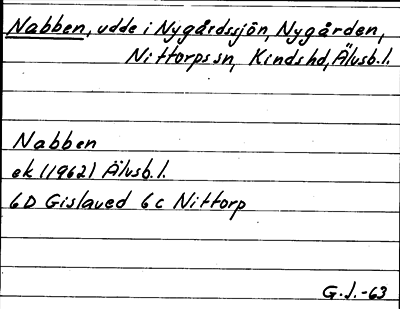 Nabben, udde i Nygårdssjön, Nygården,
Nittorps sn, Kinds hd, Älvsb.l.
Nabben
ek (1962) Älvsb.l.
6D Gislaved 6c Nittorp
G.J.-63